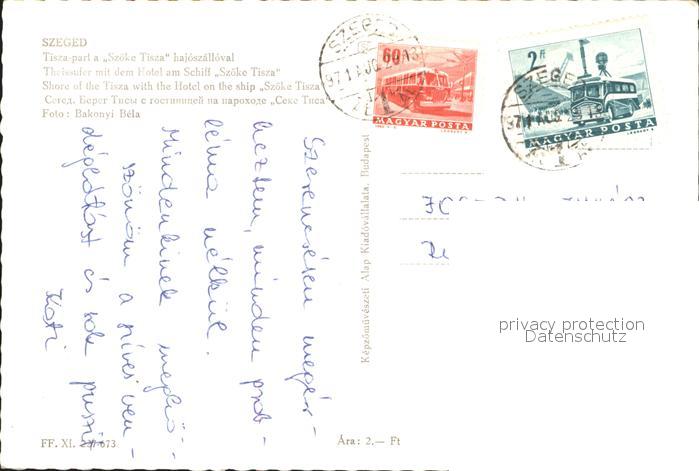 SZEGED
Tisza-part a „Szőke Tisza" hajószállóval
Theissufer mit dem Hotel am Schiff „Szőke Tisza"
Shore of the Tisza with the Hotel on the ship „Szőke Tisza"
Сегед. Берег Тисы с гостиницей на пароходе „Секе Тиса"
Foto: Bakonyi Béla
SZEGED
60f
MAGYAR POSTA
2 Ft
SZEGED
MAGYAR POSTA
Szerencsésen megér-
keztem, minden prob-
léma nélkül.
Mindenkinek megkö-
szönöm a szíves ven-
déglátást és sok puszi
Kati
Képzőművészeti Alap Kiadóvállalata, Budapest
privacy protection
Datenschutz
FF. XI. 673
Ára: 2.— Ft